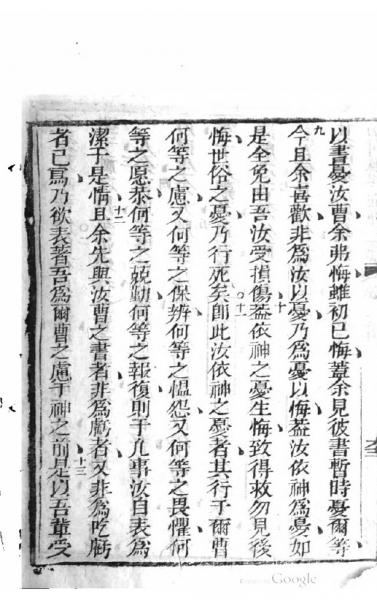 以書憂汝曹余弗悔雖初已悔蓋余見彼書暫時憂爾等
九
今且余喜歡非爲汝以憂乃爲憂以悔蓋汝依神爲憂如
十
是全免由吾汝受損傷蓋依神之憂生悔致得救勿見後
悔世俗之憂乃行死矣卽此汝依神之憂者其行于爾曹
十一
何等之慮又何等之保辨何等之愠怨又何等之畏懼何
等之愿恭何等之兢勤何等之報復則于凡事汝自表爲
十二
潔于是情且余先與汝曹之書者非爲虧者又非爲吃虧
者已爲乃欲表著吾爲爾曹之慮于神之前是以吾輩受
十三
Google